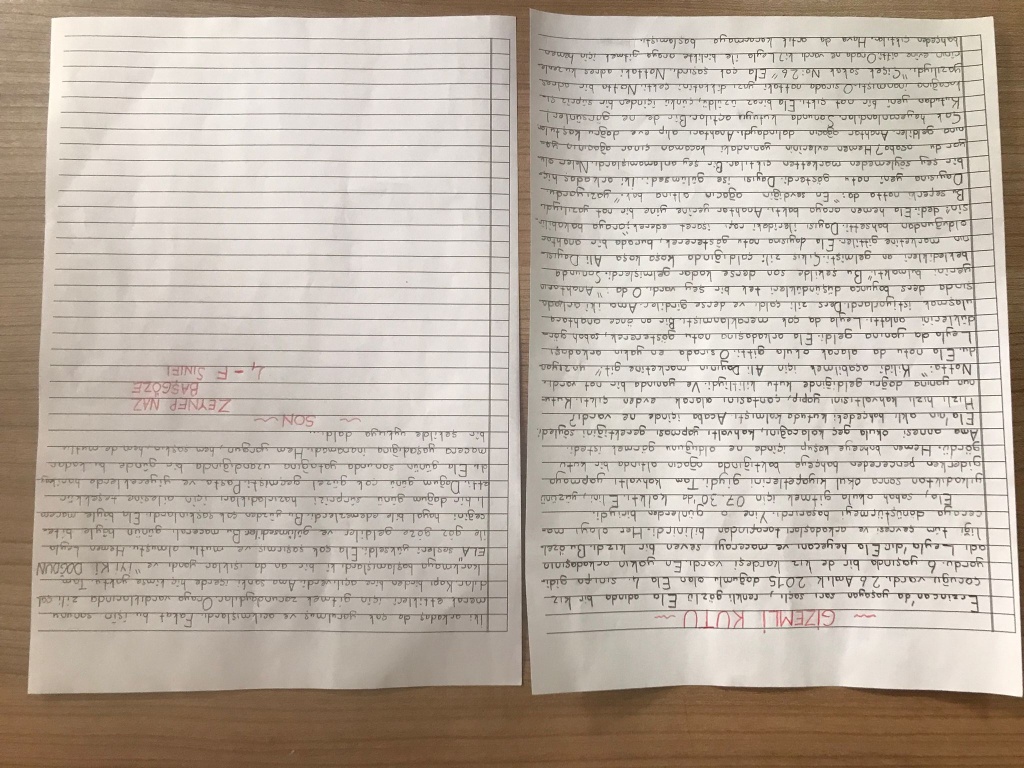 ~ GİZEMLİ KUTU ~
Erzincan'da yaşayan sarı saçlı, renkli gözlü Ela adında bir kız
çocuğu vardı. 26 Aralık 2015 doğumlu olan Ela 4. sınıfa gidi-
yordu. 6 yaşında bir de kız kardeşi vardı. En yakın arkadaşının
adı Leyla'dır. Ela heyecanı ve macerayı seven bir kızdı. Bu özel-
liği tüm çevresi ve arkadaşları tarafından bilinirdi. Her olayı ma-
ceraya dönüştürmeyi başarırdı. Yine o günlerden biriydi.
Ela, sabah okula gitmek için 07.30'da kalktı. Elini, yüzünü
yıkadıktan sonra okul kıyafetlerini giydi. Tam kahvaltı yapmaya
giderken pencereden bahçeye baktığında ağacın altında bir kutu
gördü. Hemen bahçeye koşup içinde ne olduğunu görmek istedi.
Ama annesi okula geç kalacağını, kahvaltı yapması gerektiğini söyledi.
Ela'nın aklı bahçedeki kutuda kalmıştı. Acaba içinde ne vardı?
Hızlı hızlı kahvaltısını yapıp, çantasını alarak evden çıktı. Kutu-
nun yanına doğru geldiğinde kutu kilitliydi. Ve yanında bir not vardı.
Notta: "Kilidi açabilmek için Ali Dayının marketine git" yazıyor-
du. Ela notu da alarak okula gitti. O sırada en yakın arkadaşı
Leyla da yanına geldi. Ela arkadaşına seslenerek, sabah gör-
düklerini anlattı. Leyla da çok meraklanmıştı. Bir an önce anahtara
ulaşmak istiyorlardı. Ders zili çaldı ve derse girdiler. Ama iki arkada-
şında ders boyunca düşündükleri tek bir şey vardı. O da "Anahtarın
yerini bulmaktı." Bu şekilde son derse kadar gelmişlerdi. Sonunda
bekledikleri an gelmişti. Çıkış zili çaldığında koşa koşa Ali Dayı-
nın marketine gittiler. Ela dayıya notu göstererek, burada bir anahtar
olduğundan bahsetti. Dayı ilerideki rafı işaret ederek, "oraya bakabilir-
siniz" dedi. Ela hemen oraya baktı. Anahtar yerine yine bir not yazılıydı.
Bu seferki notta da: "En sevdiğin ağacın altına bak" yazıyordu.
Dayısına yeni notu gösterdi. Dayısı ise gülümsedi. İki arkadaş hiç-
bir şey söylemeden marketten çıktılar. Bir şey anlamamışlardı. Neler olu-
yordu acaba? Hemen evlerinin yanındaki kocaman çınar ağacının ya-
nına geldiler. Anahtar ağacın dalındaydı. Anahtarı alıp eve doğru koştular.
Çok heyecanlandılar. Sonunda kutuyu açtılar. Bir de ne görsünler.
Kutudan yeni bir not çıktı. Ela biraz üzüldü, çünkü içinden bir süpriz çı-
kacağına inanmıştı. O sırada nottaki yazı dikkatini çekti. Notta bir adres
yazılıydı. "Çiçek sokak No: 26" Ela çok şaşırdı. Nottaki adres
evine aitti. Orada ne vardı ki? Leyla ile birlikte oraya gitmek için hemen
bahçeden çıktılar. Hava da artık kararmaya başlamıştı.
İki arkadaş da çok yorulmuş ve acıkmışlardı. Fakat bu işin sonunu
merak ettikleri için gitmek zorundaydılar. Oraya vardıklarında zili çal-
dılar. Kapı birden bire açılıverdi. Ama sanki içeride hiç kimse yoktu. Tam
korkmaya başlamışlardı ki bir an da ışıklar yandı ve "İYİ Kİ DOĞDUN
ELA" sesleri yükseldi. Ela çok şaşırmış ve mutlu olmuştu. Hemen Leyla
ile göz göze geldiler ve gülümsediler. Maceralı günün böyle bite-
ceğini hayal bile edemezlerdi. Bu yüzden çok şaşkınlardı. Ela böyle macera-
lı bir doğum günü sürprizi hazırladıkları için ailesine teşekkür
etti. Doğum günü çok güzel geçmişti. Pasta ve yiyeceklerde harikay-
dı. Ela günün sonunda yatağına uzandığında bir günde bu kadar
macera yaşadığına inanamadı. Hem yorgun, hem şaşkın hem de mutlu
bir şekilde uykuya daldı...
~ SON ~
ZEYNEP NAZ
BAŞGÖZE
4 - F SINIFI